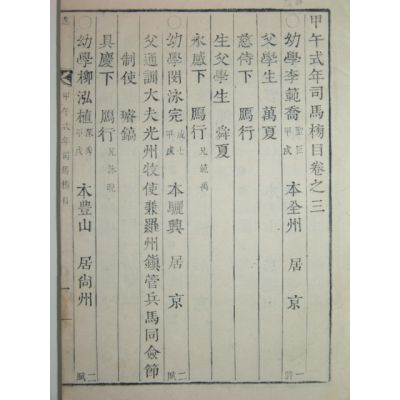 甲午式年司馬榜目卷之三
幼學李範喬 甲戌 本全州 居 京 一 詩
父學生 萬夏
慈侍下 鴈行
生父學生 舜夏
永感下 鴈行
幼學閔泳完 成七 甲戌 本驪興 居 京 二 賦
父通訓大夫光州牧使兼羅州鎭管兵馬同僉節
制使 璿鎬
具慶下 鴈行
幼學柳泓植 甲戌 本豊山 居尙州 二 賦
甲午式年司馬榜目 一